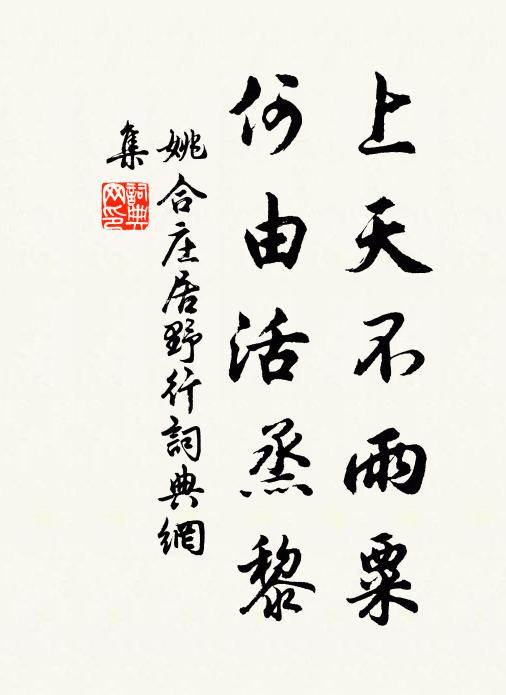 上天不雨粟
何由活烝黎
姚合庄居野行詞典網
集
詞典网印